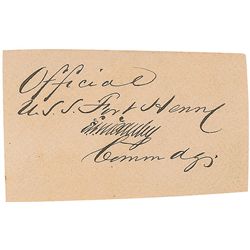 Official
U.S.S. Fort Henry
Commdg.